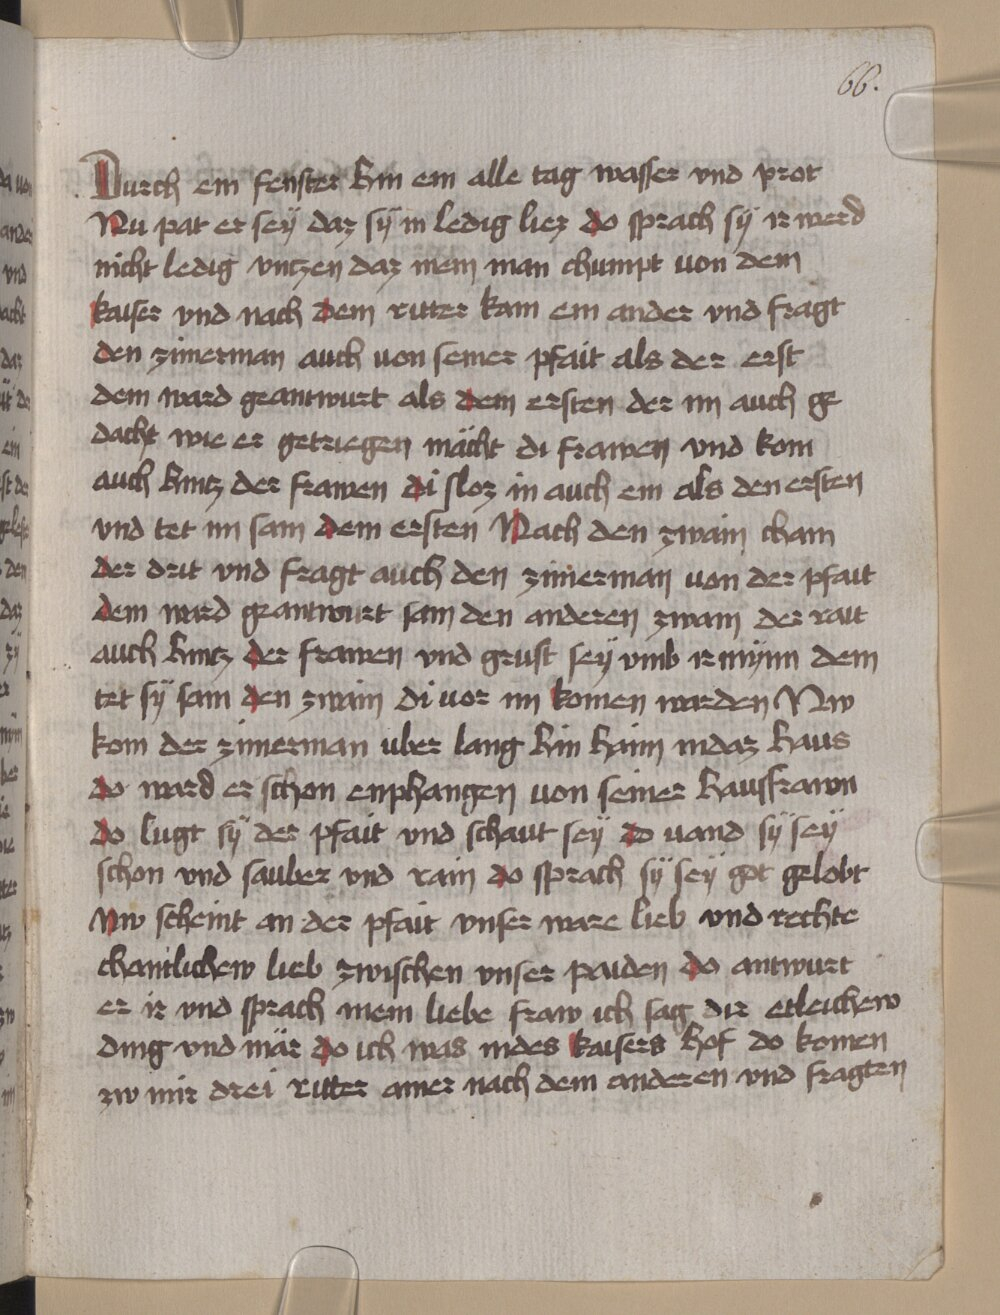 66.
Durch ein fenster hin ein alle tag wasser vnd prot
Nu pat er seÿ daz sÿ in ledig liez do sprach sÿ ir werd
nicht ledig vntzen daz mein man chumpt von dem
kaiser vnd nach dem ritter kam ein ander vnd fragt
den zimerman auch von seiner pfait als der erst
dem ward geantwurt als dem ersten der im auch ge
dacht wie er getriegen mächt di frawen vnd kom
auch hintz der frawen di sloz in auch ein als den ersten
vnd tet im sam dem ersten Nach den zwain cham
der drit vnd fragt auch den zimerman von der pfait
dem ward geantwurt sam den anderen zwain der rait
auch hintz der frawen vnd grust seÿ vmb ir mÿnn dem
tet sÿ sam den zwain di vor im komen warden Nw
kom der zimerman vber lang hin haim in daz haus
do ward er schon enphangen von seiner hausfrawn
do lugt sÿ der pfait vnd schaut seÿ do vand sÿ seÿ
schon vnd sauber vnd rain do sprach sÿ seÿ got gelobt
Nw scheint an der pfait vnser ware lieb vnd rechte
chantlichew lieb zwischen vnser paiden do antwurt
er ir vnd sprach mein liebe fraw ich sag dir etleichew
ding vnd mär do ich was in des kaisers hof do komen
zw mir drei ritter ainer nach dem anderen vnd fragten